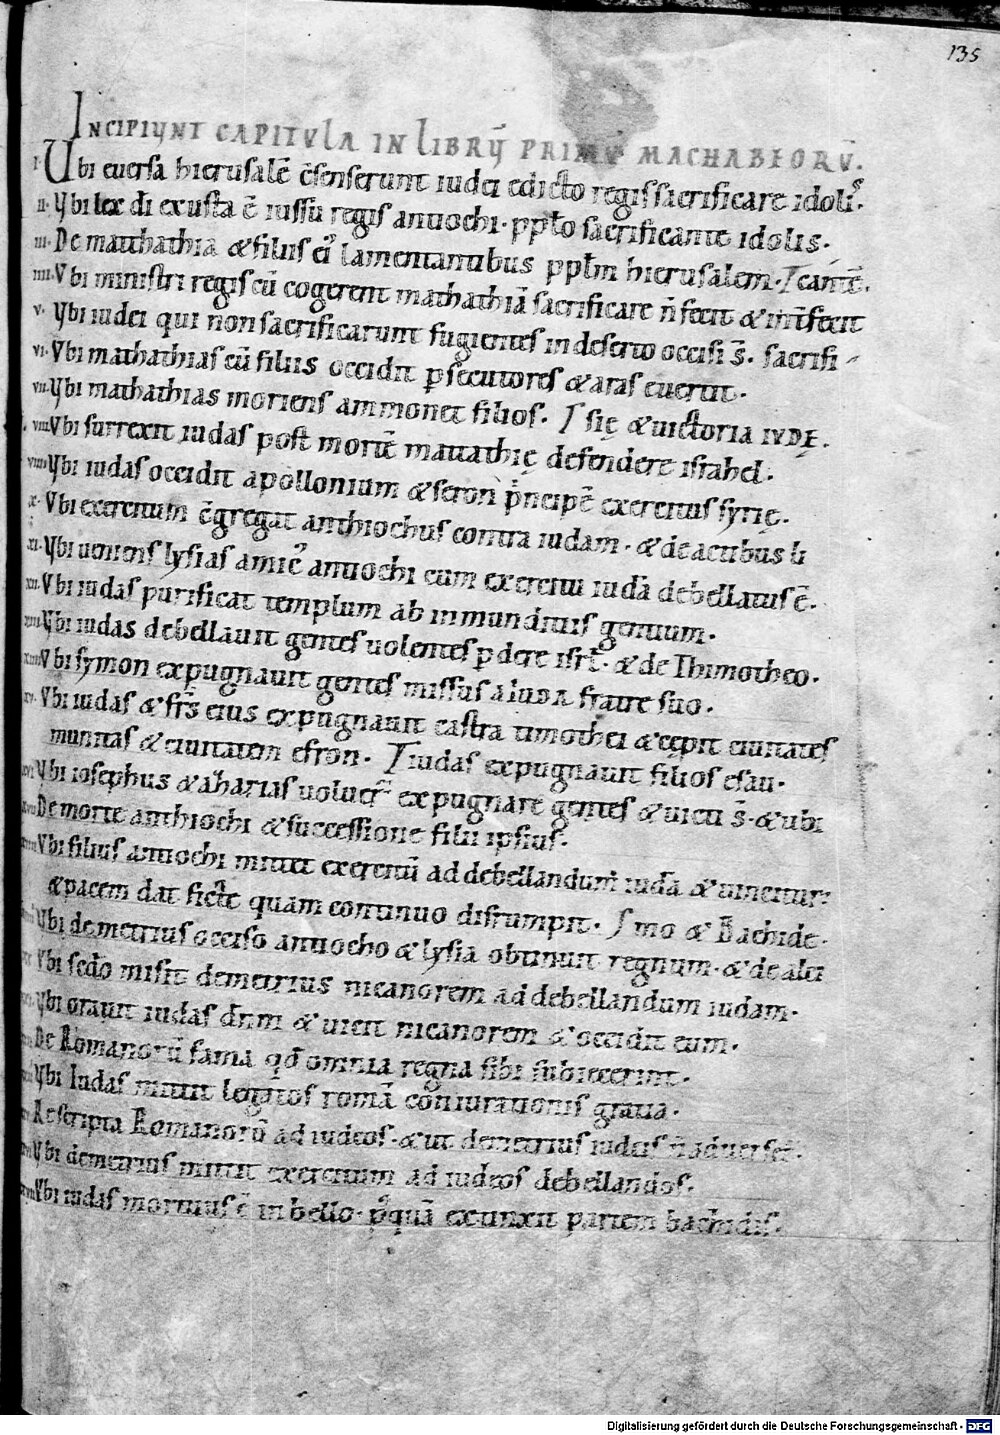 135
INCIPIUNT CAPITVLA IN LIBRŪ PRIMŪ MACHABEORŪ.
I. Ubi euersa hierusalē c̄senserunt iudei edicto regis sacrificare idolis.
II. Vbi lex dī exusta ē iussu regis antiochi. pplo sacrificante idolis.
III. De mathathia & filiis ei lamentantibus pplm hierusalem.
IIII. Vbi ministri regis cū cogerent mathathiā sacrificare n̄ fecit & interfecit
V. Vbi iudei qui non sacrificarunt fugientes in deserto occisi s̄. sacrifi
VI. Vbi mathathias cū filiis occidit psecutores & aras euertit.
VII. Vbi mathathias moriens ammonet filios. & uictoria IVDĘ.
VIII. Vbi surrexit iudas post mortē mattathię defendere israhel.
VIIII. Vbi iudas occidit apollonium & seron pncipē exercitus syrię.
X. Vbi exercitum c̄gregat anthiochus contra iudam. & de actibus li
XI. Vbi ueniens lysias amic antiochi cum exercitu iudā debellatus ē.
XII. Vbi iudas purificat templum ab inmunditiis gentium.
XIII. Vbi iudas debellauit gentes uolentes pdere isrl. & de Thimotheo.
XIIII. Vbi symon expugnauit gentes missus a IUDA fratre suo.
XV. Vbi iudas & frs̄ eius expugnauit castra timothei & cepit ciuitates
munitas & ciuitatem efron. iudas expugnauit filios esau.
Vbi iosephus & aharias uoluer expugnare gentes & uicti s̄. & ubi
De morte anthiochi & successione filii ipsius.
Vbi filius antiochi mittit exercitū ad debellandum iudā & uincitur
& pacem dat ficte quam continuo disrumpit. mo & Bachide.
Vbi demetrius occiso antiocho & lysia obtinuit regnum. & de alci
Vbi sedo misit demetrius nicanorem ad debellandum iudam.
Vbi orauit iudas dnm & uicit nicanorem & occidit eum.
De Romanorū fama qđ omnia regna sibi subiecerint.
Vbi Iudas mittit legatos romā coniurationis gratia.
Rescripta Romanorū ad iudeos. & ut demetrius iudeis n̄ aduerset.
Vbi demetrius mittit exercitum ad iudeos debellandos.
Vbi iudas mortuus ē in bello. pquā extinxit partem bachidis.
Digitalisierung gefördert durch die Deutsche Forschungsgemeinschaft - DFG